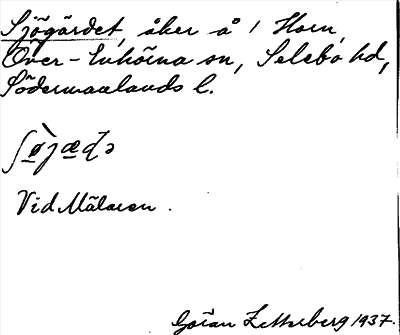 Sjögärdet, åker å 1 Horn,
Över-Enhörna sn, Selebo hd,
Södermanlands l.
ʃø̀jæɖə
Vid Mälaren.
Göran Zetterberg 1937.